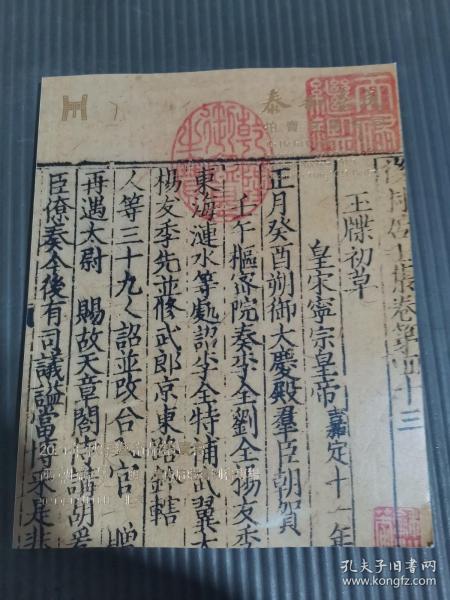 泰
拍賣
天禄繼鑑
乾隆御覽之寶
後村居士集卷第四十三
玉牒初草
皇宋寧宗皇帝 嘉定十一年
正月癸酉朔御大慶殿羣臣朝賀
壬午樞密院奏李全劉全楊友季
東海漣水等處詔李全特補武翼大
楊友季先並修武郎京東路鈐轄
人等三十九人詔並改合官 贈
再遇太尉 賜故天章閣待制胡
臣僚奏今後有司議謚當 是非
孔夫子旧书网
www.kongfz.com